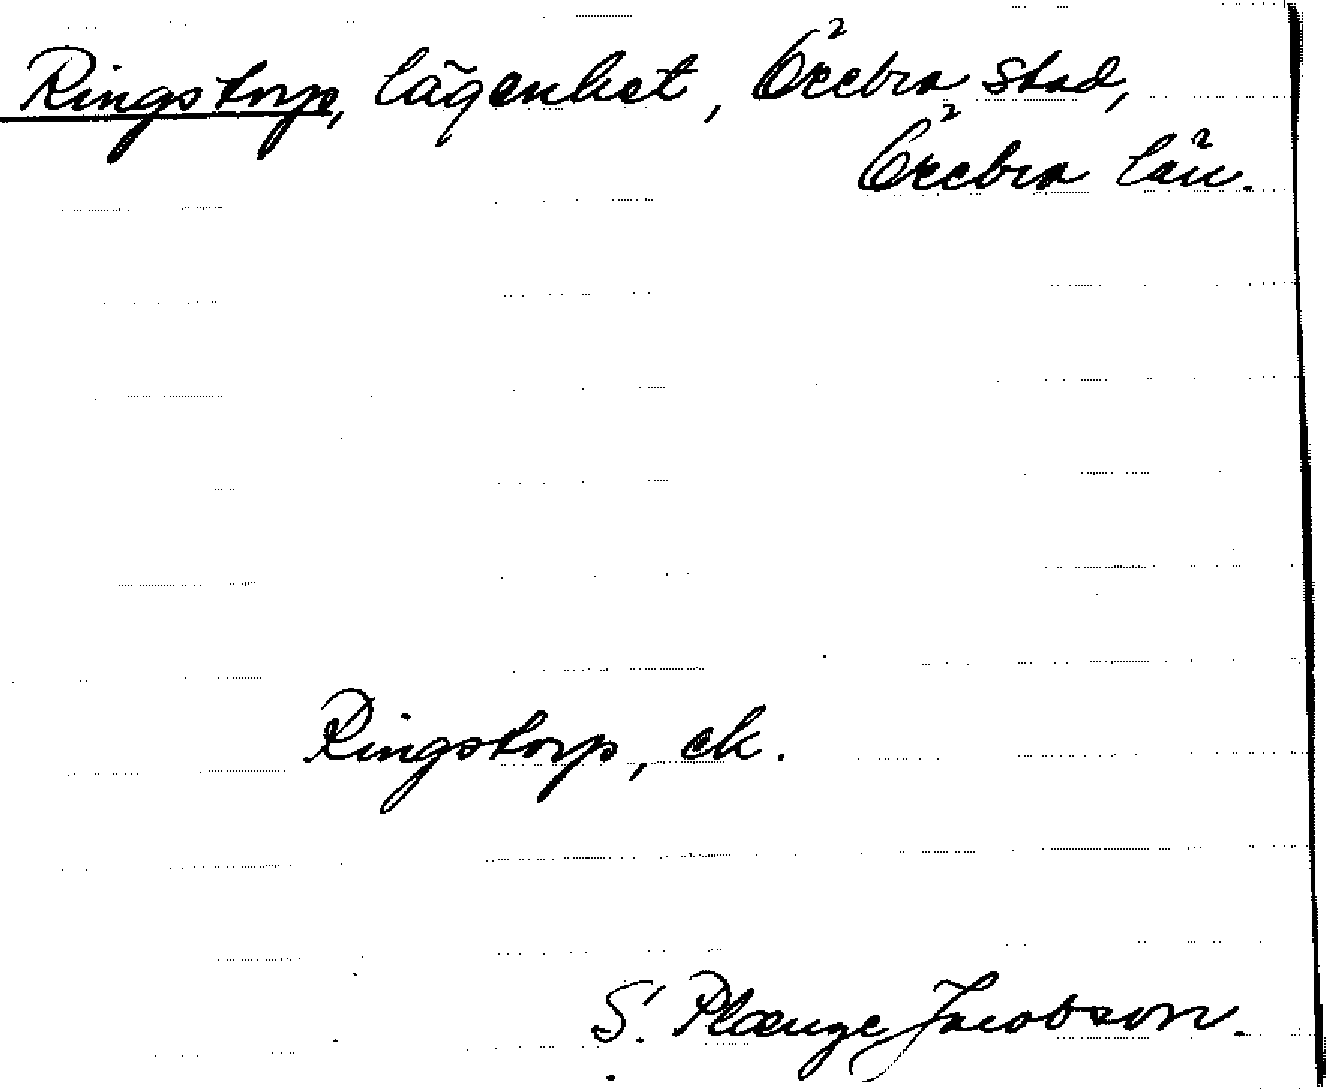 Ringstorp, lägenhet, Örebro stad,
Örebro län.
Ringstorp, ek.
S. Plænge Jacobson.